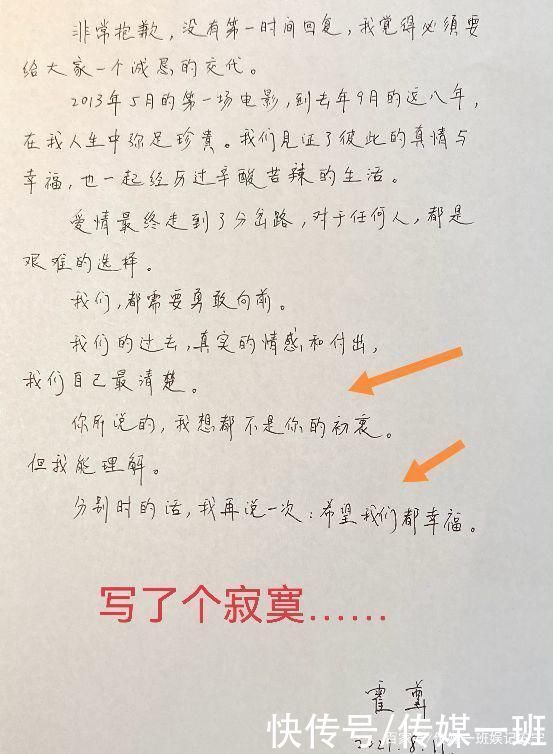 非常抱歉，没有第一时间回复，我觉得必须要
给大家一个诚恳的交代。
2013年5月的第一场电影，到去年9月的这八年，
在我人生中弥足珍贵。我们见证了彼此的真情与
幸福，也一起经历过辛酸苦辣的生活。
爱情最终走到了分岔路，对于任何人，都是
艰难的选择。
我们，都需要勇敢向前。
我们的过去，真实的情感和付出，
我们自己最清楚。
你所说的，我想都不是你的初衷。
但我能理解。
分别时的话，我再说一次：希望我们都幸福。
写了个寂寞......
霍尊
2021.8.11.
快传号/传媒一班